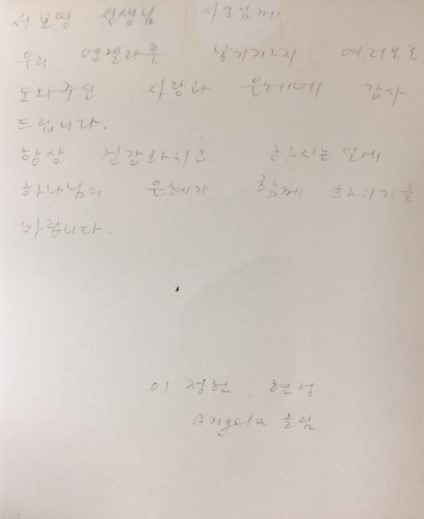 서보명 선생님 사모님께
우리 엔젤라를 낳기까지 여러모로
도와주신 사랑과 은혜에 감사
드립니다.
항상 건강하시고 하시는 일에
하나님의 은혜가 함께 하시기를
바랍니다.
이 정헌. 현성
Angela 드림